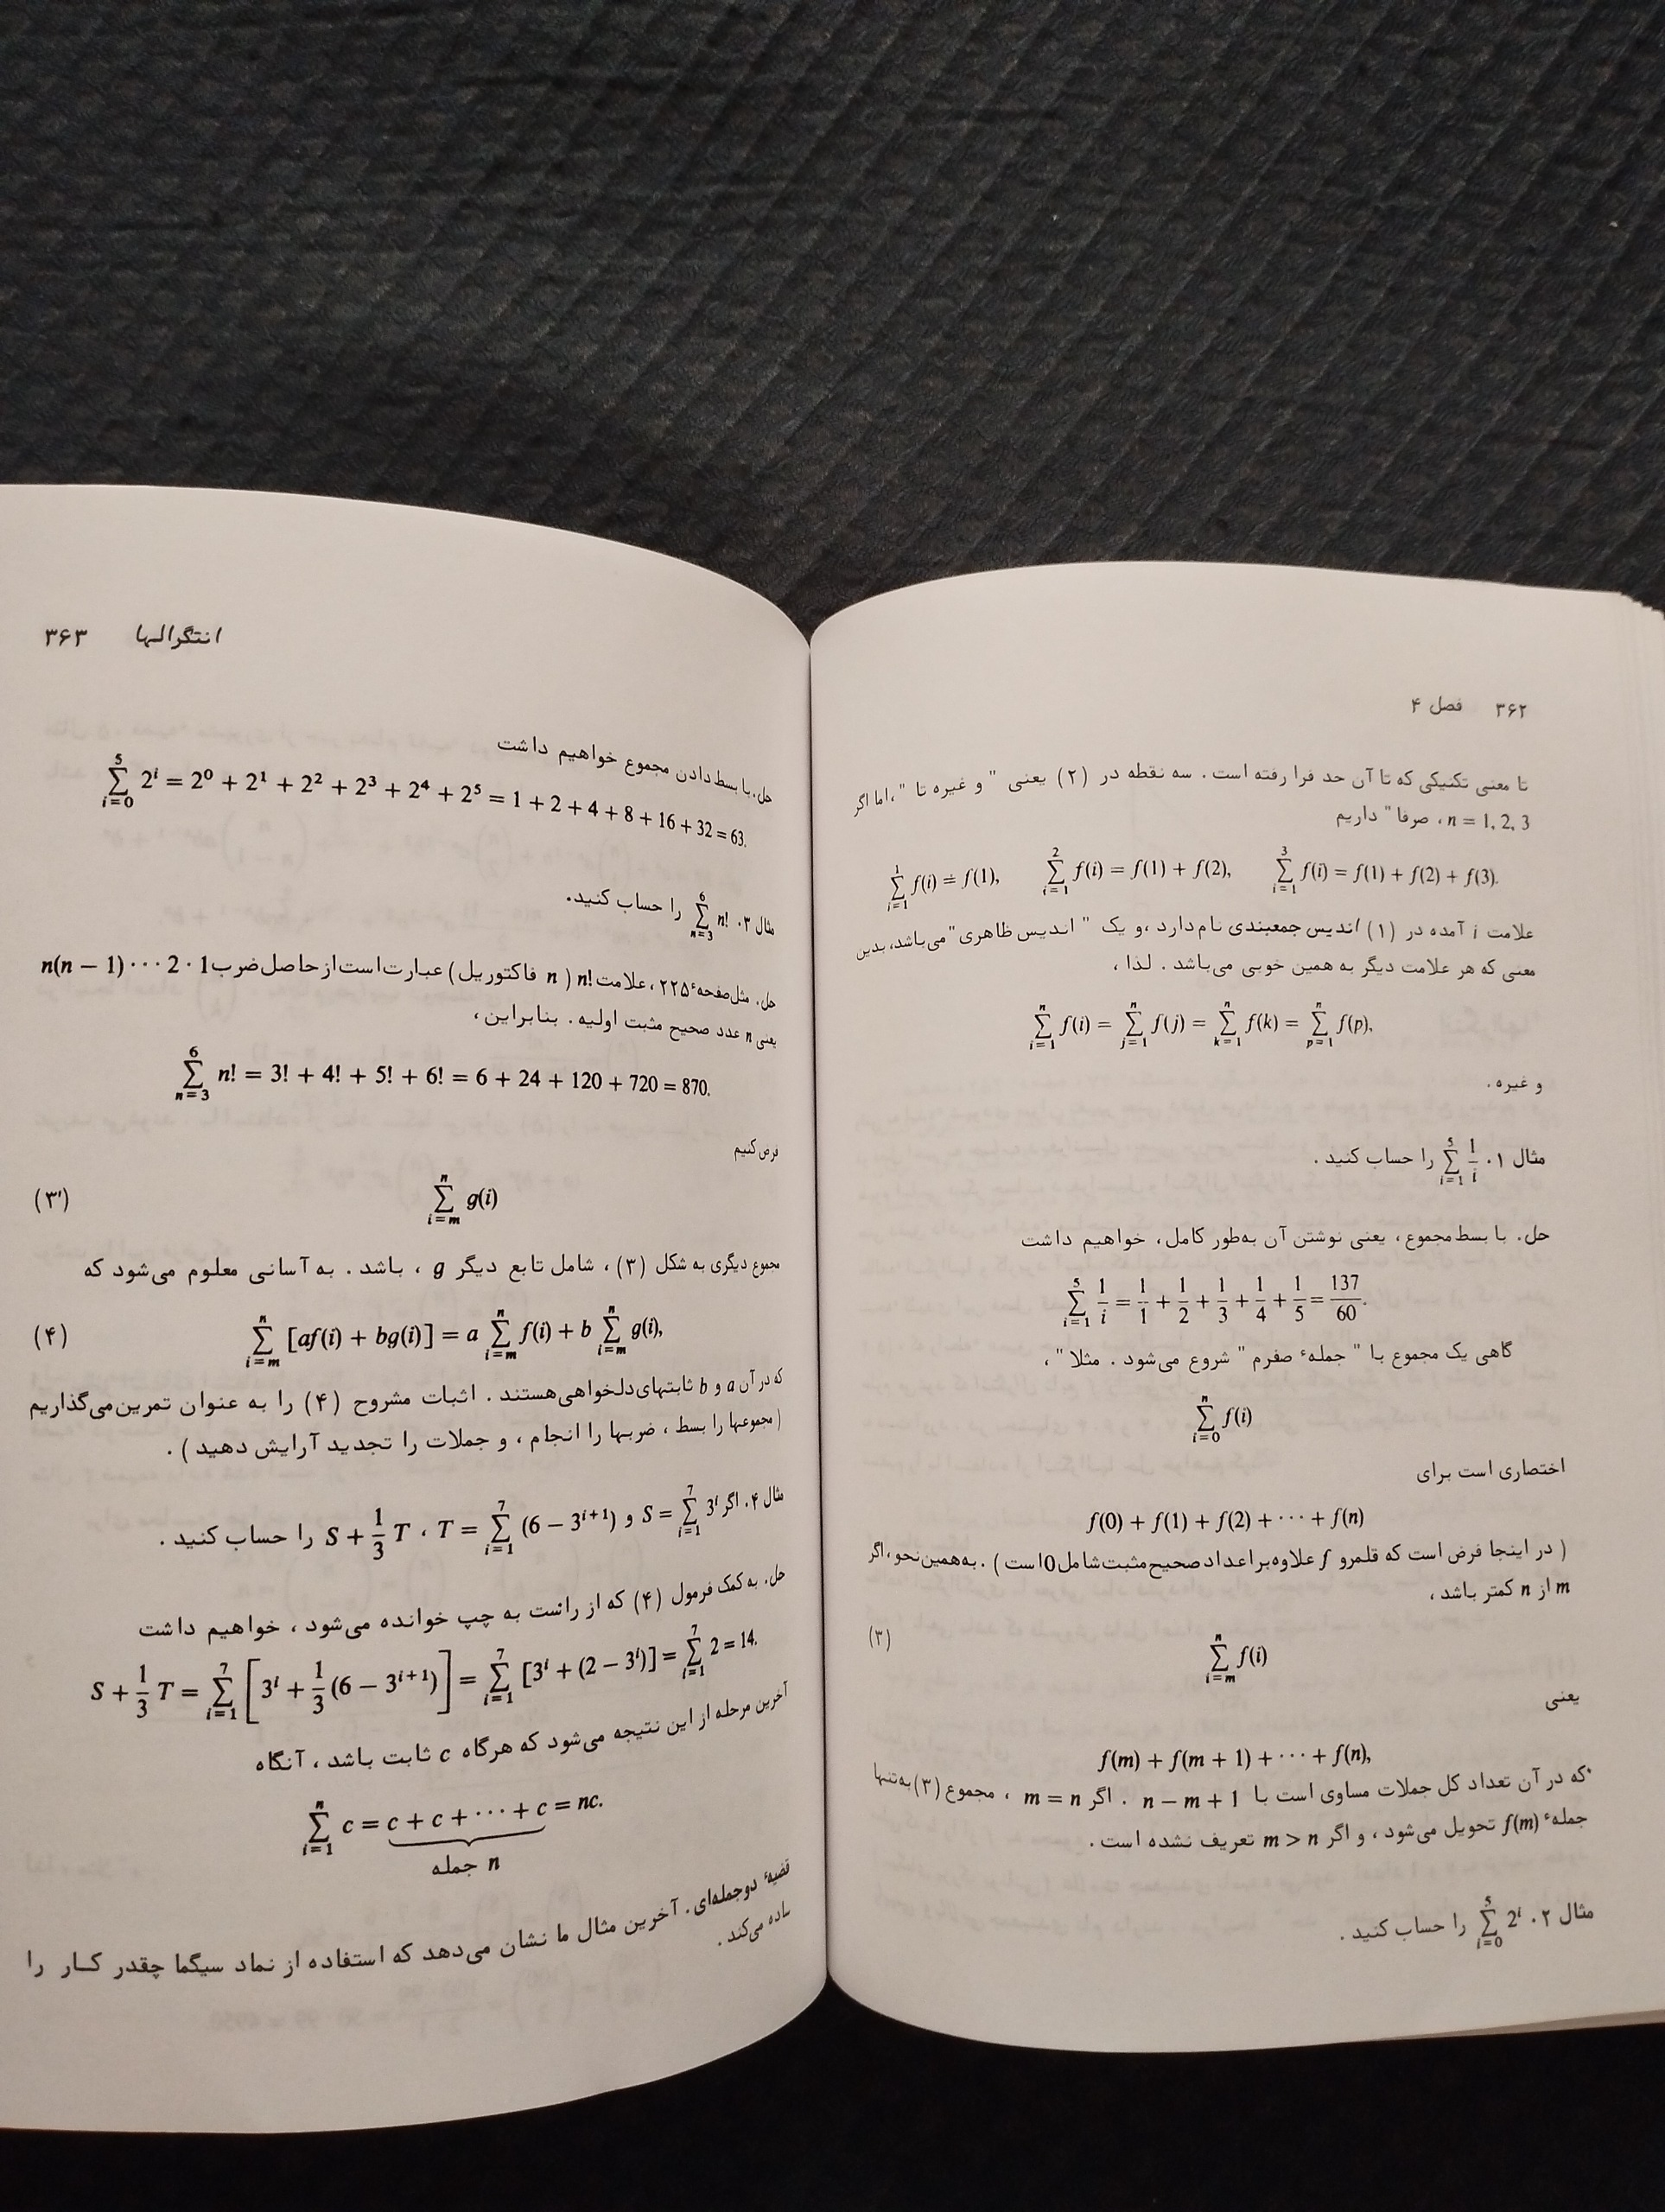 ۳۶۲ فصل ۴
تا معنی تکنیکی که تا آن حد فرا رفته است . سه نقطه در (۲) یعنی " و غیره تا " ،اما اگر
n = 1, 2, 3 ، صرفا" داریم
∑_{i=1}^{1} f(i) = f(1), ∑_{i=1}^{2} f(i) = f(1) + f(2), ∑_{i=1}^{3} f(i) = f(1) + f(2) + f(3).
علامت i آمده در (۱) اندیس جمعبندی نام دارد ،و یک " اندیس ظاهری" می‌باشد، بدین
معنی که هر علامت دیگر به همین خوبی می‌باشد . لذا ،
∑_{i=1}^{n} f(i) = ∑_{j=1}^{n} f(j) = ∑_{k=1}^{n} f(k) = ∑_{p=1}^{n} f(p),
و غیره .
مثال ۱. ∑_{i=1}^{5} 1/i را حساب کنید .
حل. با بسط مجموع، یعنی نوشتن آن به‌طور کامل، خواهیم داشت
∑_{i=1}^{5} 1/i = 1/1 + 1/2 + 1/3 + 1/4 + 1/5 = 137/60.
گاهی یک مجموع با " جملهٔ صفرم " شروع می‌شود . مثلا" ،
∑_{i=0}^{n} f(i)
اختصاری است برای
f(0) + f(1) + f(2) + ··· + f(n)
( در اینجا فرض است که قلمرو f علاوه بر اعداد صحیح مثبت شامل 0 است ) . به همین نحو، اگر
m از n کمتر باشد ،
∑_{i=m}^{n} f(i) (۳)
یعنی
f(m) + f(m + 1) + ··· + f(n),
که در آن تعداد کل جملات مساوی است با n − m + 1 . اگر m = n ، مجموع (۳) به تنها
جملهٔ f(m) تحویل می‌شود ، و اگر m > n تعریف نشده است .
مثال ۲. ∑_{i=0}^{5} 2^i را حساب کنید .
انتگرالها ۳۶۳
حل. با بسط دادن مجموع خواهیم داشت
∑_{i=0}^{5} 2^i = 2^0 + 2^1 + 2^2 + 2^3 + 2^4 + 2^5 = 1 + 2 + 4 + 8 + 16 + 32 = 63.
مثال ۳. ∑_{n=3}^{6} n! را حساب کنید.
حل. مثل صفحهٔ ۲۲۵، علامت n! ( n فاکتوریل ) عبارت است از حاصل ضرب n(n − 1) ··· 2 · 1
یعنی n عدد صحیح مثبت اولیه . بنابراین ،
∑_{n=3}^{6} n! = 3! + 4! + 5! + 6! = 6 + 24 + 120 + 720 = 870.
فرض کنیم
∑_{i=m}^{n} g(i) (۳′)
مجموع دیگری به شکل (۳) ، شامل تابع دیگر g ، باشد . به آسانی معلوم می‌شود که
∑_{i=m}^{n} [af(i) + bg(i)] = a ∑_{i=m}^{n} f(i) + b ∑_{i=m}^{n} g(i), (۴)
که در آن a و b ثابتهای دلخواهی هستند . اثبات مشروح (۴) را به عنوان تمرین می‌گذاریم
( مجموعها را بسط ، ضربها را انجام ، و جملات را تجدید آرایش دهید ) .
مثال ۴. اگر S = ∑_{i=1}^{7} 3^i و T = ∑_{i=1}^{7} (6 − 3^{i+1}) ، S + 1/3 T را حساب کنید .
حل. به کمک فرمول (۴) که از راست به چپ خوانده می‌شود ، خواهیم داشت
S + 1/3 T = ∑_{i=1}^{7} [3^i + 1/3 (6 − 3^{i+1})] = ∑_{i=1}^{7} [3^i + (2 − 3^i)] = ∑_{i=1}^{7} 2 = 14.
آخرین مرحله از این نتیجه می‌شود که هرگاه c ثابت باشد ، آنگاه
∑_{i=1}^{n} c = c + c + ··· + c = nc.
n جمله
قضیهٔ دوجمله‌ای. آخرین مثال ما نشان می‌دهد که استفاده از نماد سیگما چقدر کار را
ساده می‌کند .